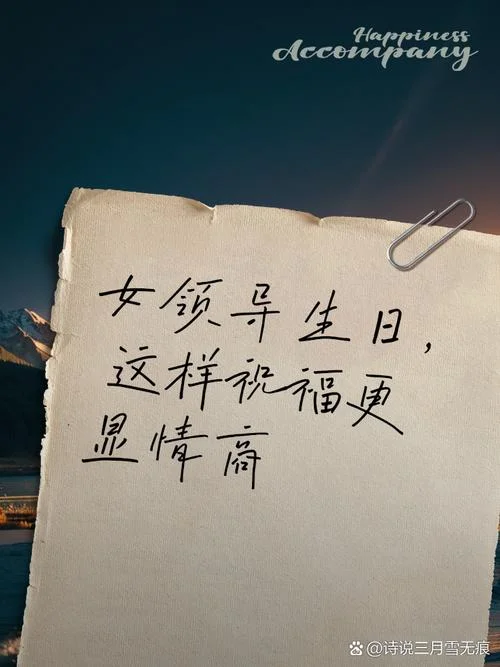 Happiness
Accompany
女领导生日,
这样祝福更
显情商
@诗说三月雪无痕